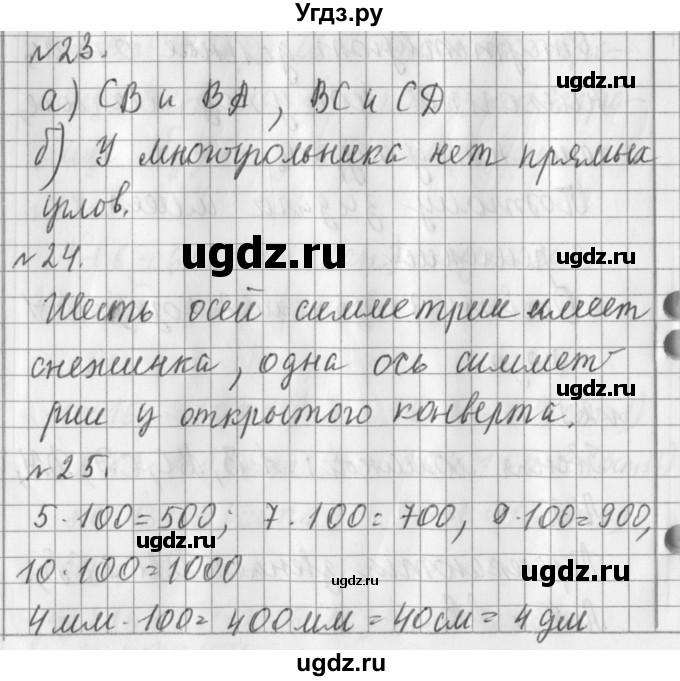 Угдз.ру
№23.
ugdz.ru
а) СВ и ВА, ВС и СД
б) У многоугольника нет прямых
углов.
ugdz.ru
ugdz.ru
№24.
Шесть осей симметрии имеет
снежинка, одна ось симмет-
ugdz.ru
рии у открытого конверта.
№25.
5·100=500; 7·100=700, 9·100=900,
ugdz.ru
10·100=1000
ugdz.ru
ugdz.ru
4мм·100=400мм=40см=4дм
ugdz.ru